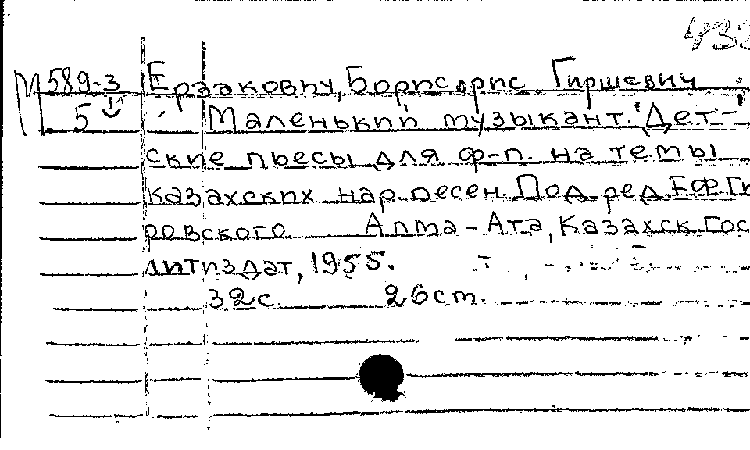 433
М 589-3 Ерзакович, Борисорис Гиршевич
5 Маленький музыкант. Дет-
ские пьесы для ф-п. на темы
казахских нар. песен. Под ред. Е.Ф.Ги
ровского Алма-Ата, Казахск. Гос
литиздат, 1955.
32 с. 26 ст.